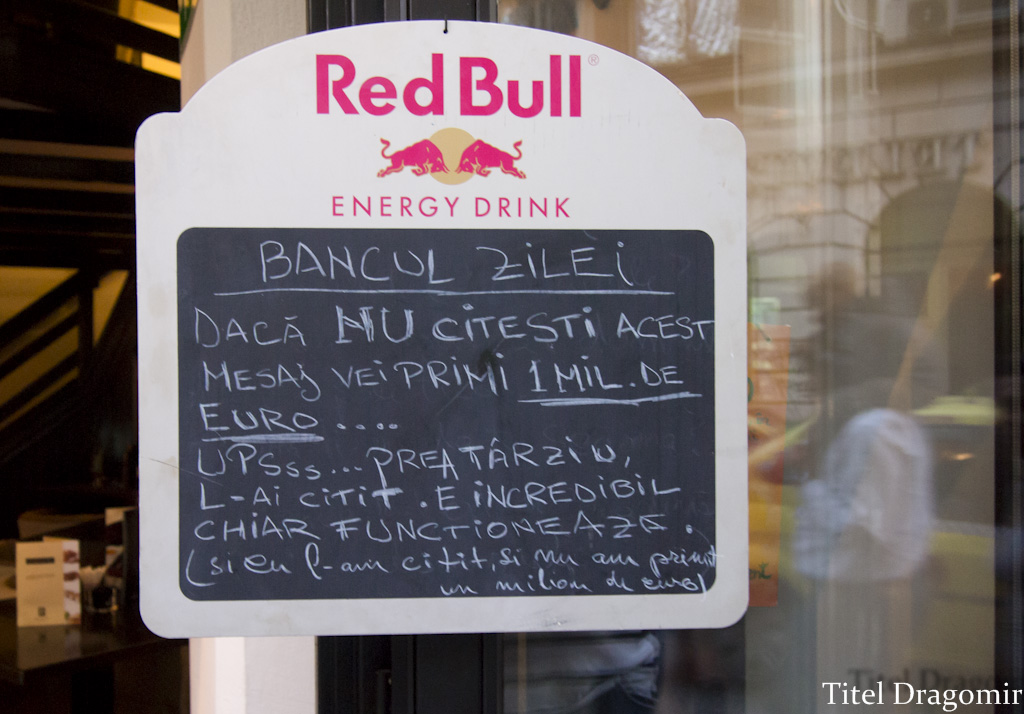 Red Bull®
ENERGY DRINK
BANCUL ZILEI
DACĂ NU CITESTI ACEST
MESAJ VEI PRIMI 1 MIL. DE
EURO ....
UPSsss... PREA TÂRZIU,
L-AI CITIT. E INCREDIBIL
CHIAR FUNCTIONEAZE.
(si eu l-am citit, si nu am primit
un milion de euro)
Titel Dragomir